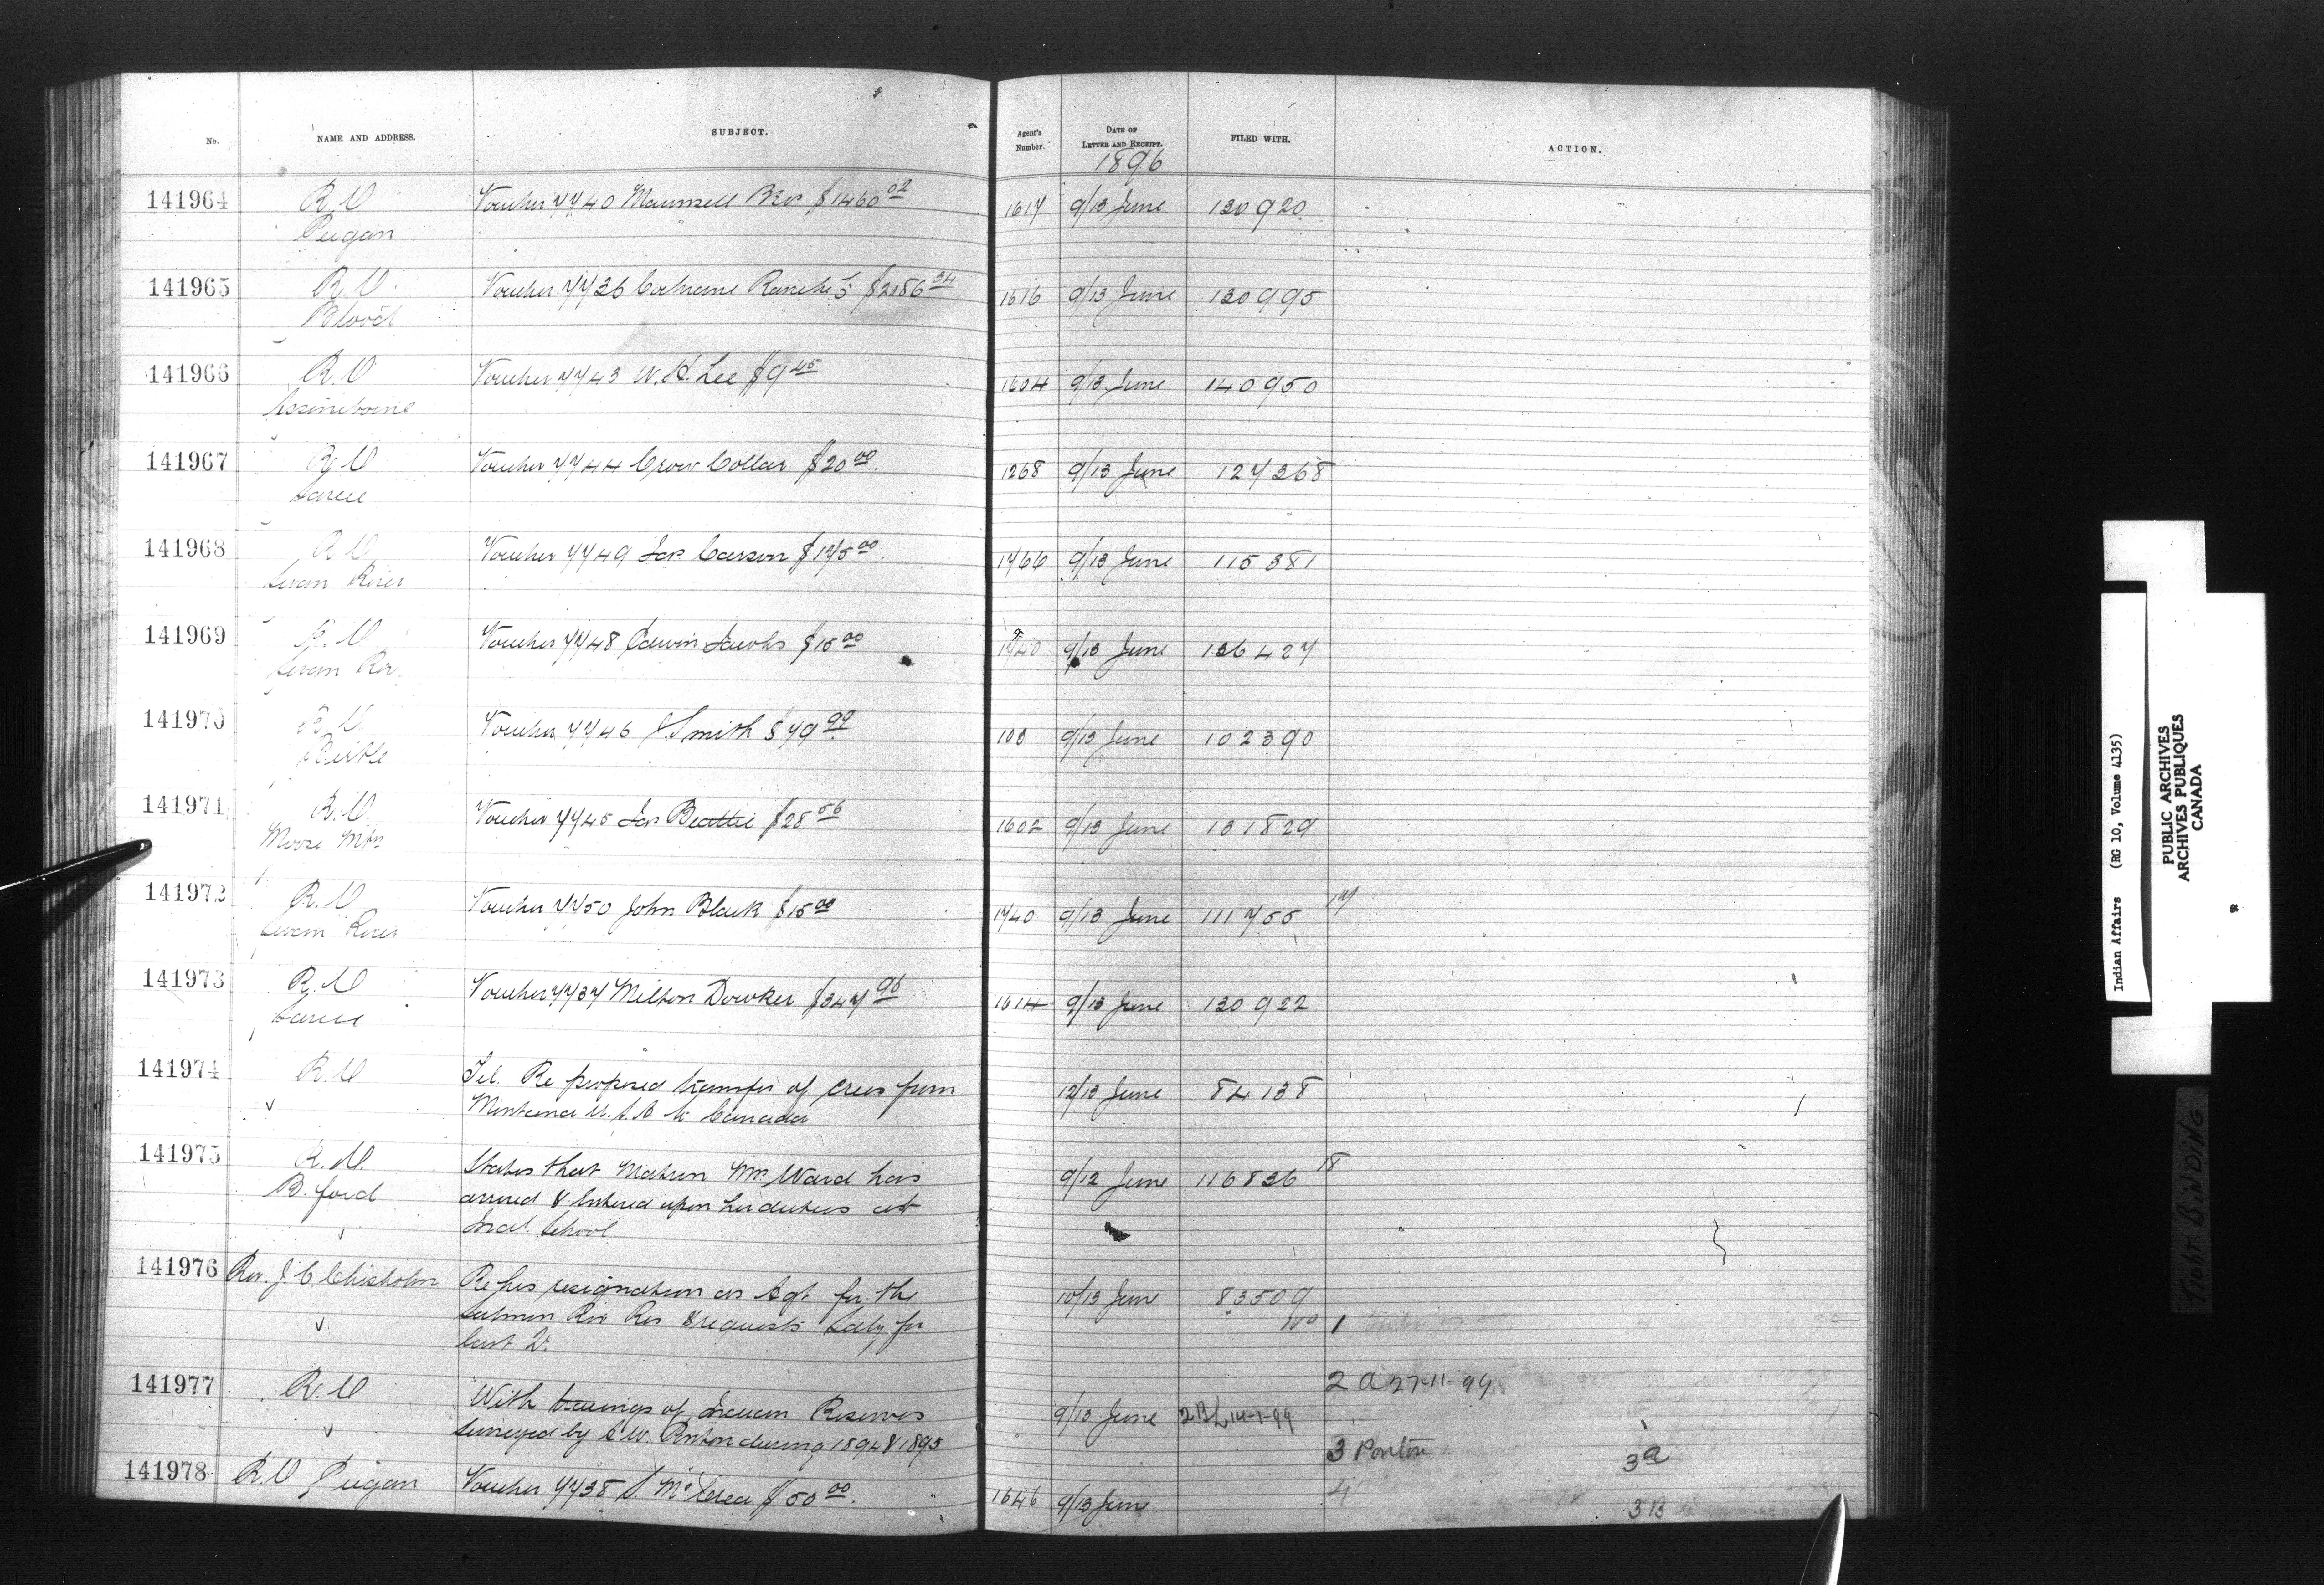 No. NAME AND ADDRESS. SUBJECT. Agent's Number. DATE OF LETTER AND RECEIPT. FILED WITH. ACTION.
1896
141964 R.O Voucher 7740 Maunsell Bros $1460.02 1617 9/13 June 130920
Peigan
141965 R.O. Voucher 7736 Cochrane Ranche $2186.34 1616 9/13 June 130995
Blood
141966 R.O Voucher 7743 W.H. Lee $9.45 1604 9/13 June 140950
Assiniboine
141967 R.O Voucher 7744 Crow Collar $20.00 1268 9/13 June 127368
Sarcee
141968 R.O Voucher 7749 Jas Carson $175.00 1766 9/13 June 115381
Swan River
141969 R.O Voucher 7748 Edwin Jacobs $15.00 1740 9/13 June 136427
Swan Rir.
141970 R.O Voucher 7746 J. Smith $79.99 9/13 June 102390
Birtle
141971 R.O. Voucher 7745 Jas Beattie $28.56 1602 9/13 June 131829
Moose Mtn
141972 R.O Voucher 7750 John Black $15.00 1740 9/13 June 111755 17
Swan River
141973 R.O Voucher 7737 Milton Dowker $347.96 1614 9/13 June 130922
Sarcee
141974 R.O Tel. Re proposed transfer of Crees from 12/13 June 84138
Montana U.S.A to Canada
141975 R.O. States that Matron Mrs. Ward has 9/12 June 116836 18
B. ford arrived & entered upon her duties at
Indl. School.
141976 Rev. J. C Chisholm Re his resignation as Agt for the 10/13 June 83509
Salmon Riv Res & requests Saly for 1
last Qr.
141977 R.O With tracings of Indian Reserves 9/13 June 2B 14-1-99
2 a 27-11-99
surveyed by A W. Ponton during 1894 & 1895
3 Ponton 3a
141978 R.O Peigan Voucher 7738 S. McCrea $50.00. 1646 9/13 June
4 3B
Indian Affairs (RG 10, Volume 4135)
PUBLIC ARCHIVES
ARCHIVES PUBLIQUES
CANADA
TIGHT BINDING